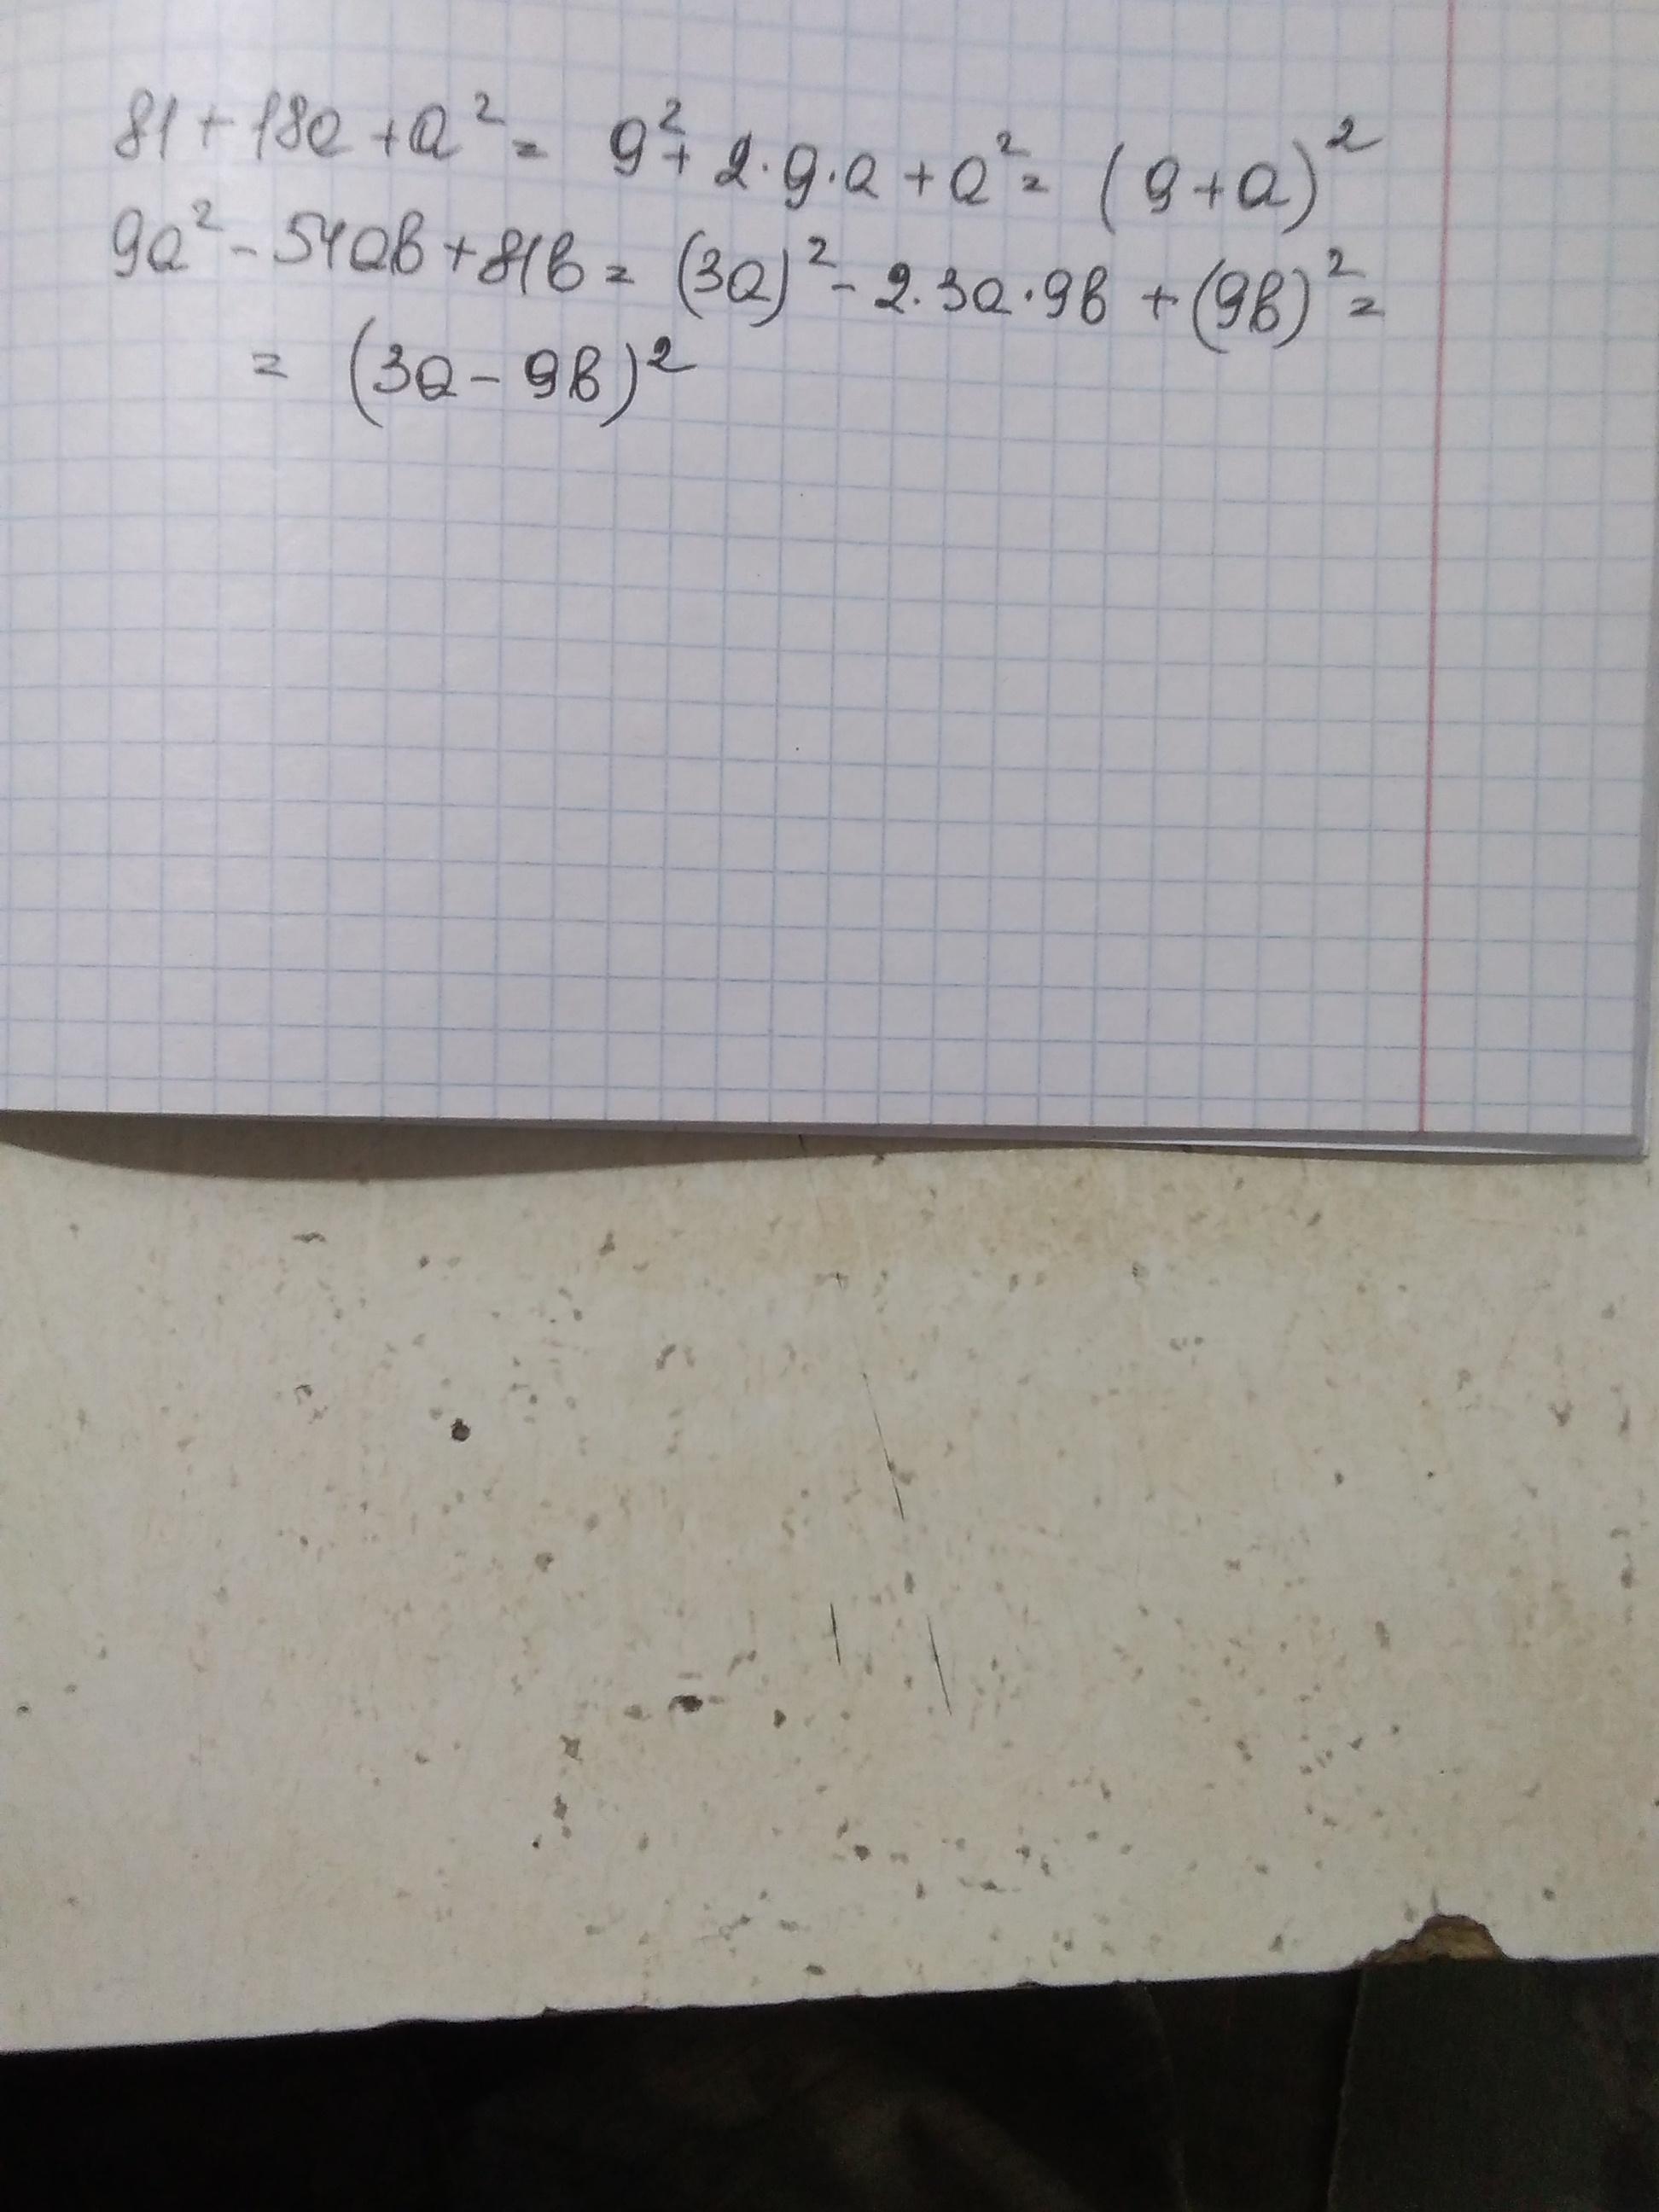 81 + 18a + a² = 9² + 2·9·a + a² = (9 + a)²
9a² - 54ab + 81b = (3a)² - 2·3a·9b + (9b)² =
= (3a - 9b)²